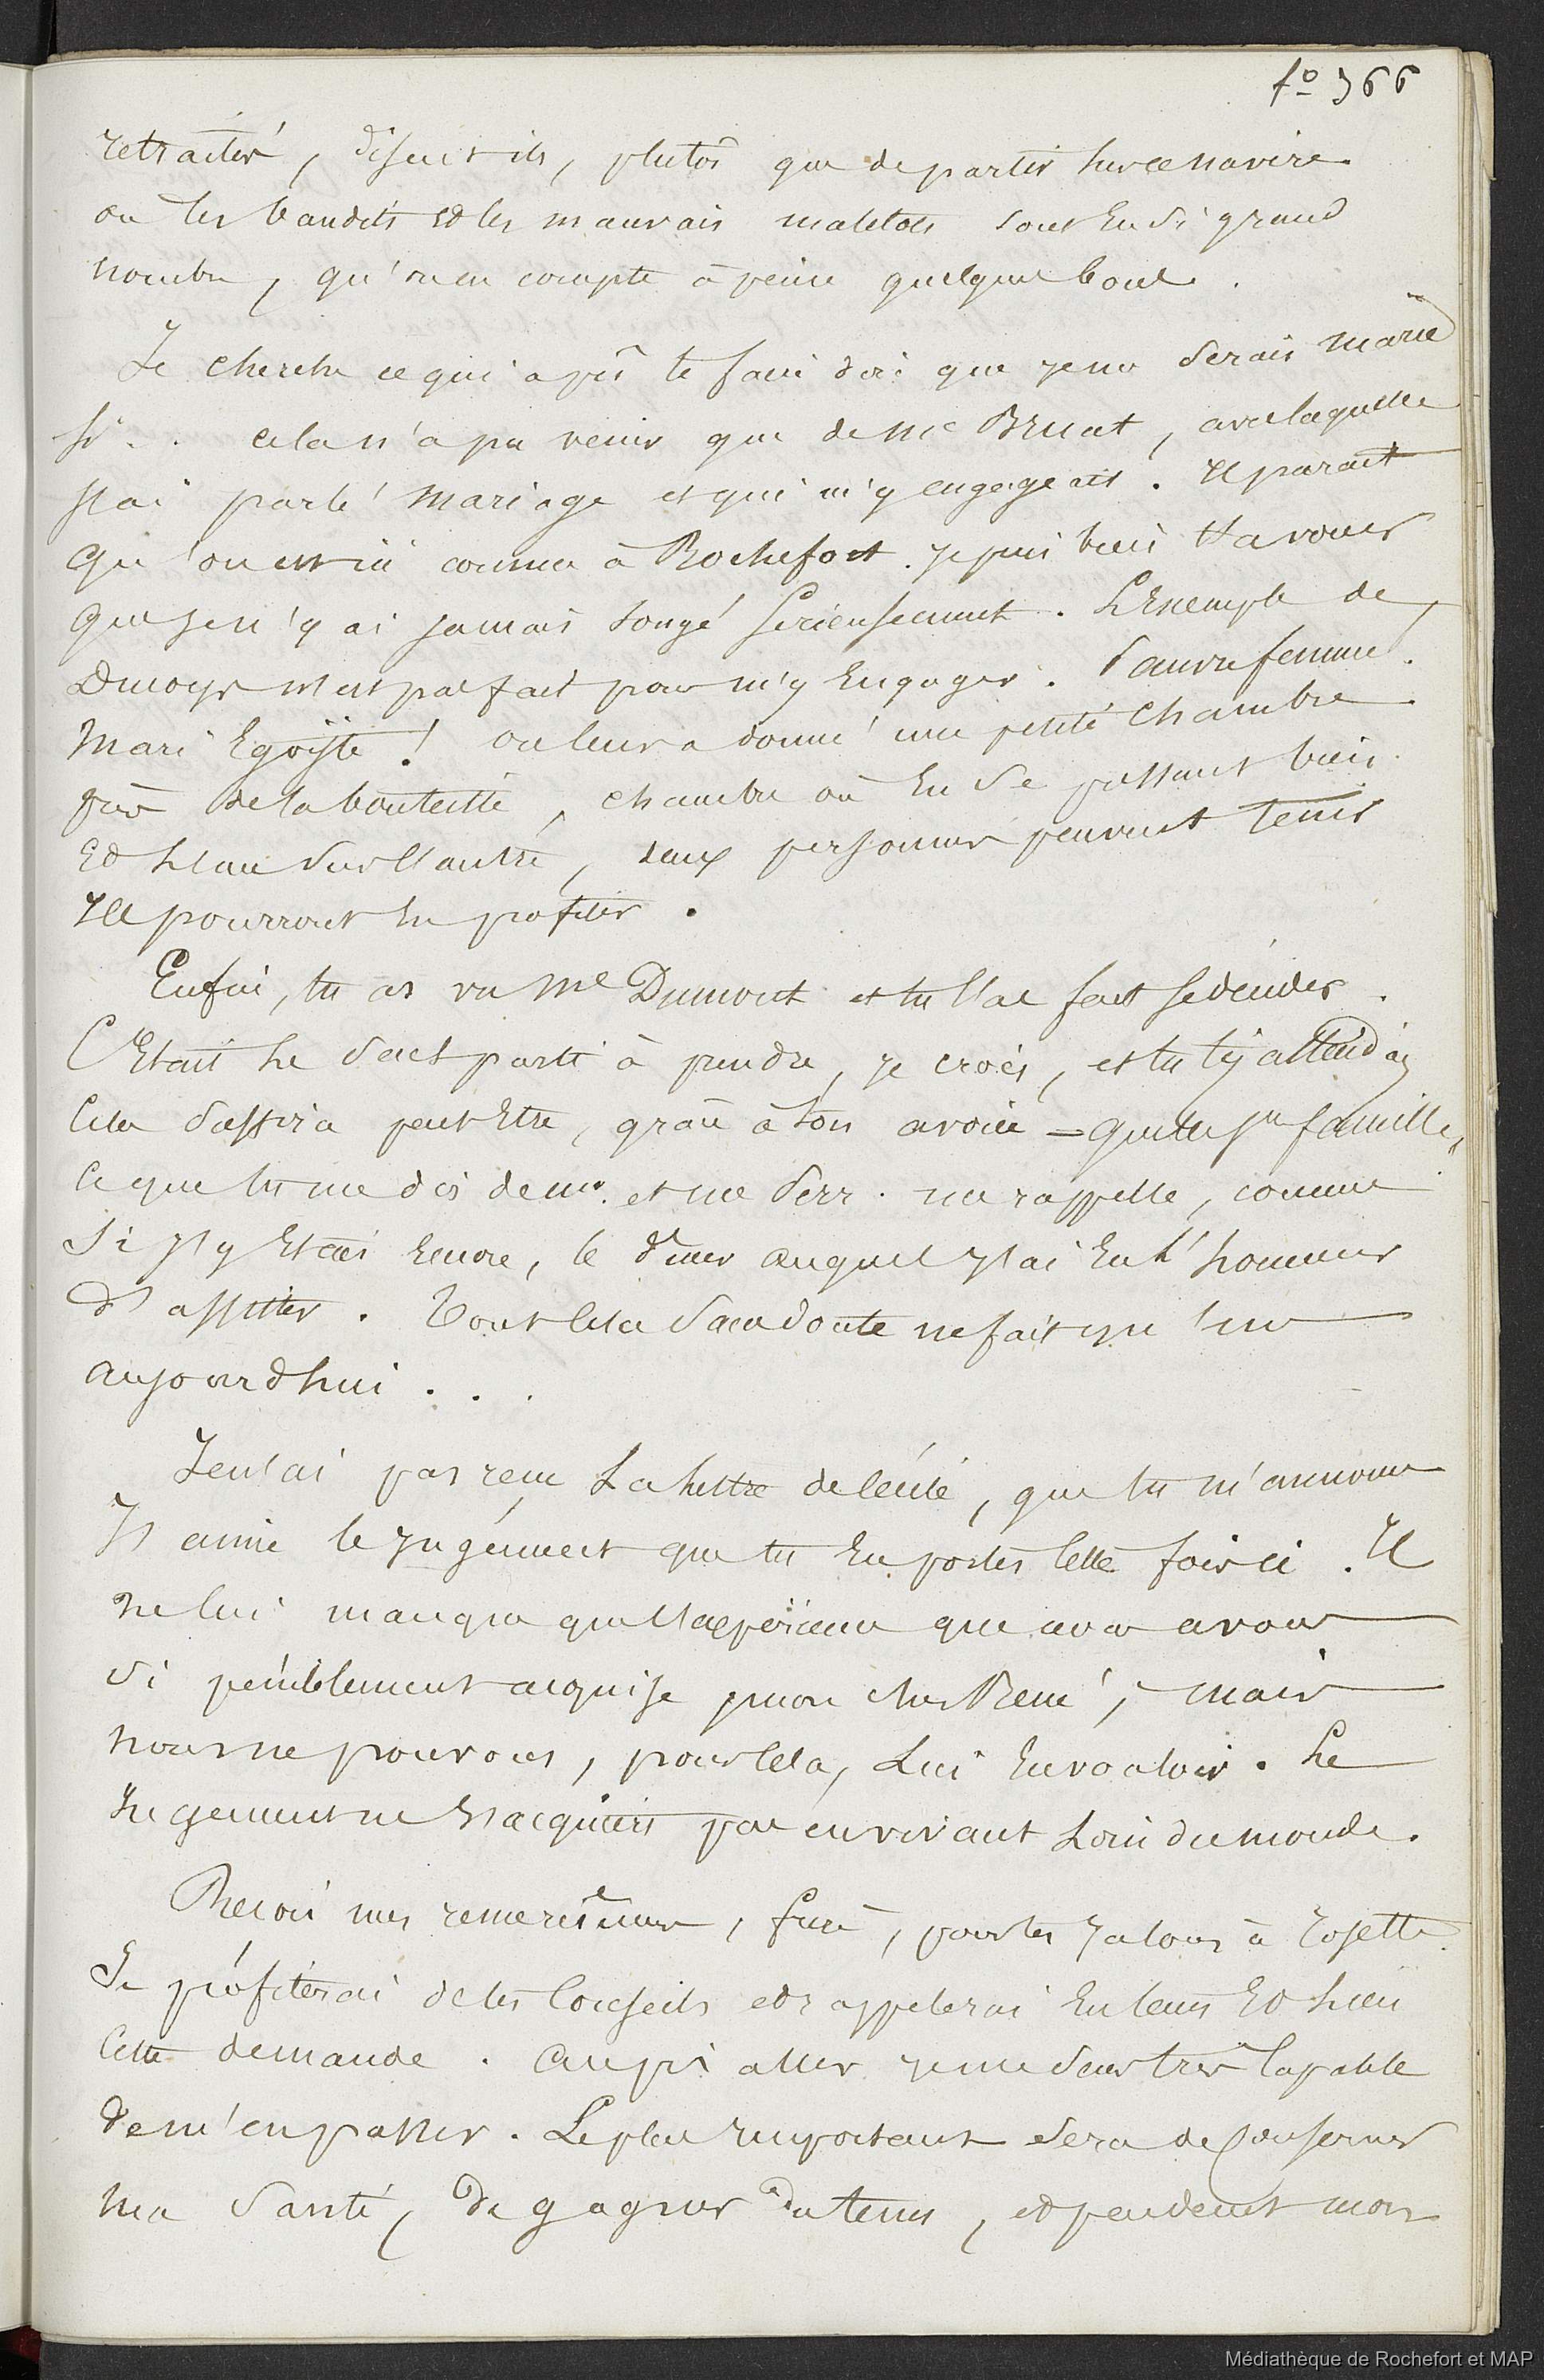 fo 366
retraiter, disent ils, plutôt que de partir sur ce navire
ou les bandits et les mauvais matelots sont en si grand
nombre, qu'on en compte à peine quelques bons.
Je cherche ce qui a pû te faire dire que je me serais marié
si . . cela n'a pu venir que de Me Bruat, avec laquelle
j'ai parlé mariage et qui m'y engageait. Il parait
qu'on est ici comme à Rochefort. Je puis bien t'avouer
que je n'y ai jamais songé sérieusement. L'Exemple de
n'est pas fait pour m'y Engager. Pauvre femme.
Mari Egoïste ! on leur a donné une petite chambre
près de la bouteille, chambre où En se pressant bien
Et l'un sur l'autre, deux personnes peuvent tenir
Ils pourront En profiter.
Enfin, tu as vu Me Dumont et tu l'as fait se décider.
C'Etait le seul parti à prendre, je crois, et tu t'y attendais
Cela s'assira peut Etre, grâce à ton avoué =
Ce que tu me dis de mr. et me Serr. me rappelle, comme
si j'y Etais Encore, le diner auquel j'ai Eu l'honneur
d'assister. Tout cela sans doute ne fait qu'un
aujourd'hui . . .
Je n'ai pas reçu La lettre de Cécile, que tu m'annonces
J'aime le jugement que tu En portes cette fois ci. Il
ne lui manque que l'expérience que nous avons
si péniblement acquise mon cher René, mais
nous ne pouvons, pour cela, Lui En vouloir. Le
Jugement ne s'acquiert pas en vivant Loin du monde.
Reçois mes remerciemens, frère, pour les jalons à Cosette
Je profiterai de tes Conseils et rappelerai En tems Et lieu
Cette demande. Au pis aller je me sens très Capable
de m'en passer. Le plus Important sera de Conserver
Ma Santé, de gagner du tems, et pendant mon
Médiathèque de Rochefort et MAP